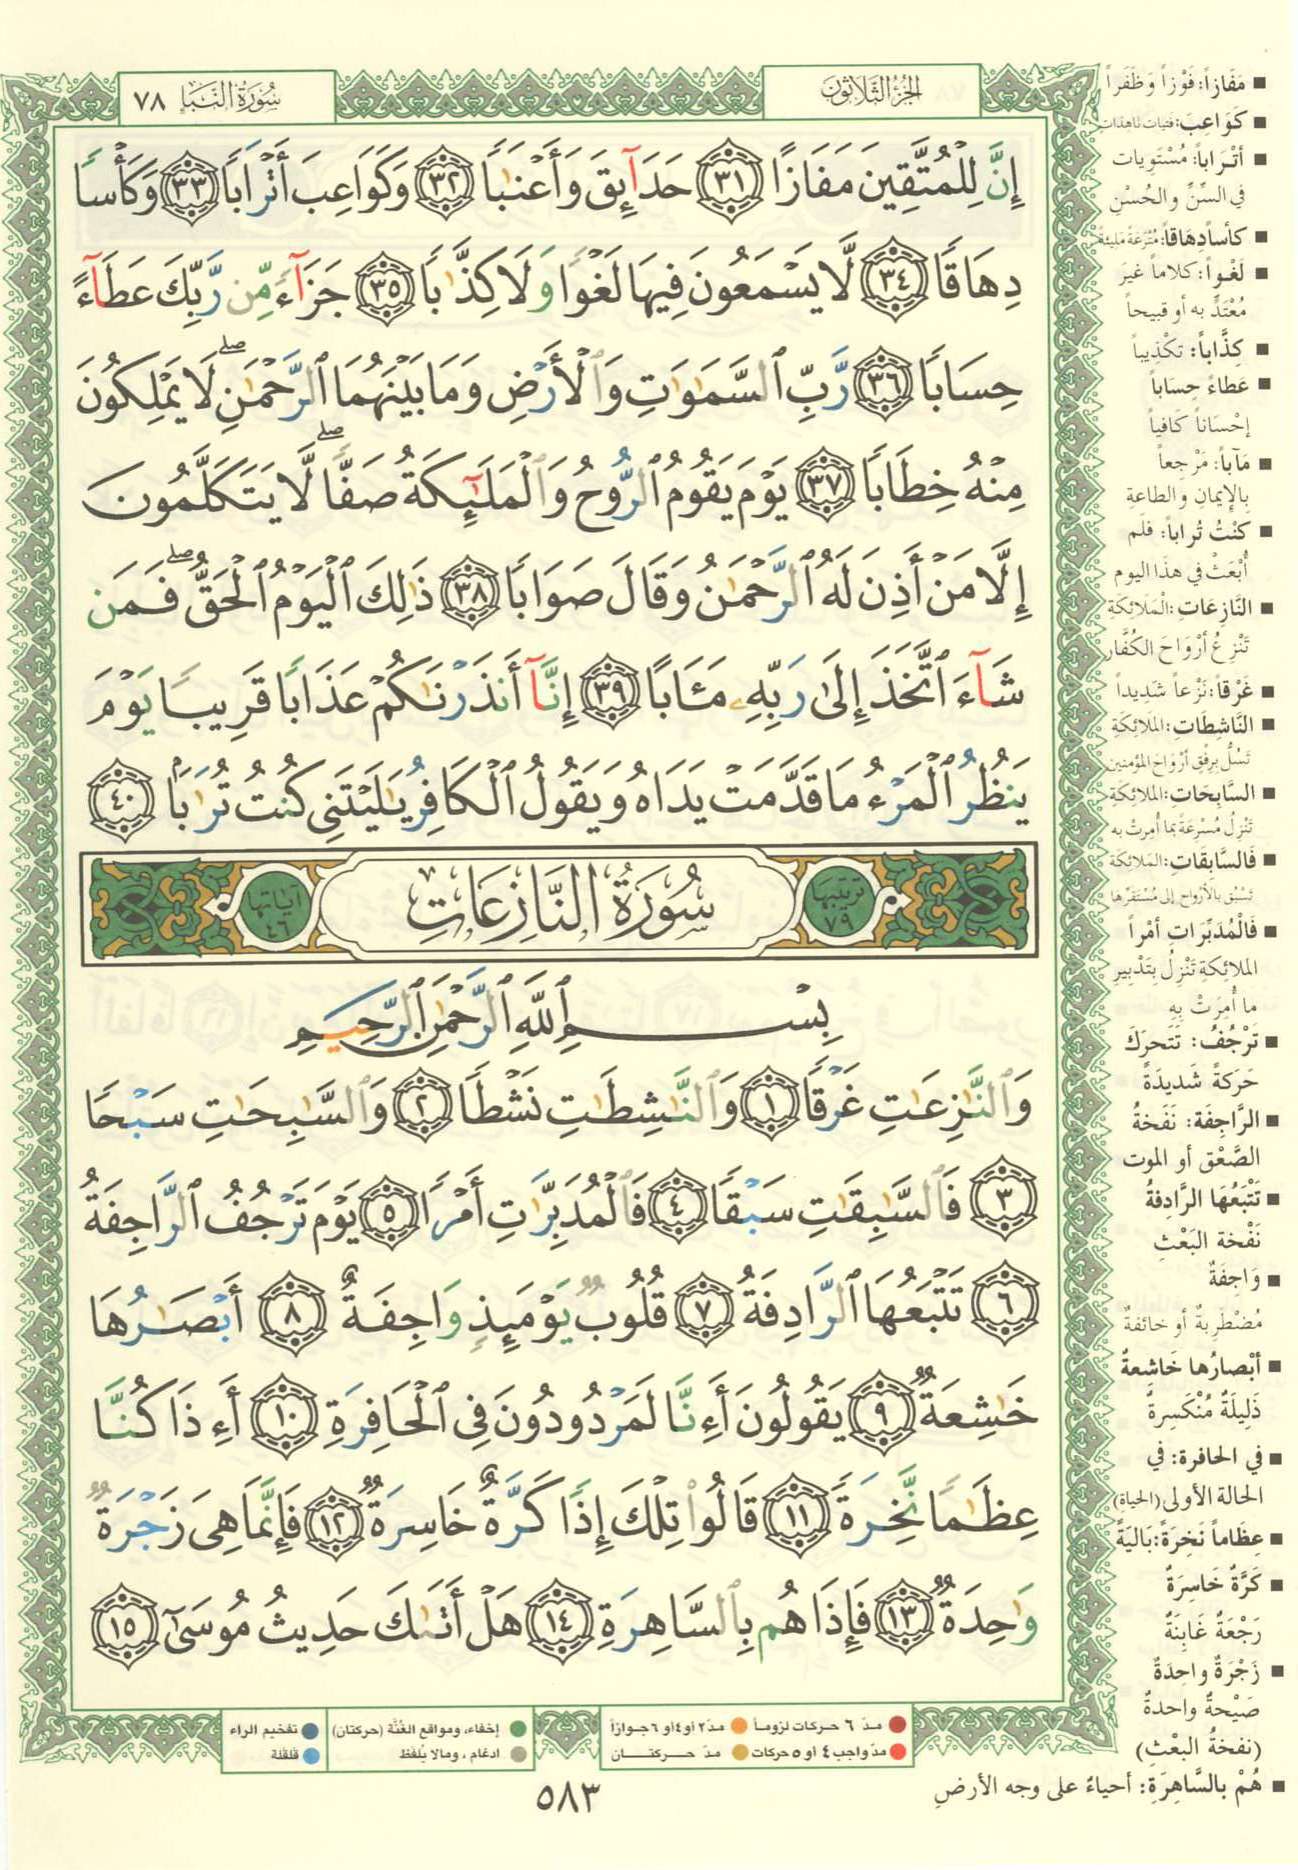 الجزء الثلاثون
سورة النبإ ٧٨
إِنَّ لِلْمُتَّقِينَ مَفَازًا ٣١ حَدَآئِقَ وَأَعْنَٰبًا ٣٢ وَكَوَاعِبَ أَتْرَابًا ٣٣ وَكَأْسًا
دِهَاقًا ٣٤ لَّا يَسْمَعُونَ فِيهَا لَغْوًا وَلَا كِذَّٰبًا ٣٥ جَزَآءً مِّن رَّبِّكَ عَطَآءً
حِسَابًا ٣٦ رَّبِّ ٱلسَّمَٰوَٰتِ وَٱلْأَرْضِ وَمَا بَيْنَهُمَا ٱلرَّحْمَٰنِ ۖ لَا يَمْلِكُونَ
مِنْهُ خِطَابًا ٣٧ يَوْمَ يَقُومُ ٱلرُّوحُ وَٱلْمَلَٰٓئِكَةُ صَفًّا ۖ لَّا يَتَكَلَّمُونَ
إِلَّا مَنْ أَذِنَ لَهُ ٱلرَّحْمَٰنُ وَقَالَ صَوَابًا ٣٨ ذَٰلِكَ ٱلْيَوْمُ ٱلْحَقُّ ۖ فَمَن
شَآءَ ٱتَّخَذَ إِلَىٰ رَبِّهِۦ مَـَٔابًا ٣٩ إِنَّآ أَنذَرْنَٰكُمْ عَذَابًا قَرِيبًا يَوْمَ
يَنظُرُ ٱلْمَرْءُ مَا قَدَّمَتْ يَدَاهُ وَيَقُولُ ٱلْكَافِرُ يَٰلَيْتَنِى كُنتُ تُرَٰبًۢا ٤٠
ترتيبها ٧٩
سُورَةُ النَّازِعَاتِ
آياتها ٤٦
بِسْمِ ٱللَّهِ ٱلرَّحْمَٰنِ ٱلرَّحِيمِ
وَٱلنَّٰزِعَٰتِ غَرْقًا ١ وَٱلنَّٰشِطَٰتِ نَشْطًا ٢ وَٱلسَّٰبِحَٰتِ سَبْحًا
٣ فَٱلسَّٰبِقَٰتِ سَبْقًا ٤ فَٱلْمُدَبِّرَٰتِ أَمْرًا ٥ يَوْمَ تَرْجُفُ ٱلرَّاجِفَةُ
٦ تَتْبَعُهَا ٱلرَّادِفَةُ ٧ قُلُوبٌ يَوْمَئِذٍ وَاجِفَةٌ ٨ أَبْصَٰرُهَا
خَٰشِعَةٌ ٩ يَقُولُونَ أَءِنَّا لَمَرْدُودُونَ فِى ٱلْحَافِرَةِ ١٠ أَءِذَا كُنَّا
عِظَٰمًا نَّخِرَةً ١١ قَالُوا۟ تِلْكَ إِذًا كَرَّةٌ خَاسِرَةٌ ١٢ فَإِنَّمَا هِىَ زَجْرَةٌ
وَٰحِدَةٌ ١٣ فَإِذَا هُم بِٱلسَّاهِرَةِ ١٤ هَلْ أَتَىٰكَ حَدِيثُ مُوسَىٰٓ ١٥
■ مَفَازاً: فَوْزاً وَظَفَراً
■ كَوَاعِبَ: فتيات ناهدات
■ أتْرَاباً: مُسْتَوِيات
في السِّنِّ والحُسْنِ
■ كأساً دِهَاقاً: مُتْرَعَةً مليئةً
■ لَغْواً: كلاماً غيرَ
مُعْتَدٍّ به أو قبيحاً
■ كِذَّاباً: تَكْذِيباً
■ عَطاءً حِسَاباً
إحْسَاناً كافياً
■ مَآباً: مَرْجِعاً
بالإيمانِ والطاعةِ
■ كنْتُ تُراباً: فلَم
أُبْعَثْ في هذا اليوم
■ النَّازِعَاتِ: الْمَلَائِكَةِ
تَنْزِعُ أرْوَاحَ الكُفَّار
■ غَرْقاً: نَزْعاً شَدِيداً
■ النَّاشِطَاتِ: المَلَائِكَةِ
تَسُلُّ بِرِفْقٍ أرْوَاحَ المُؤمنين
■ السَّابِحَاتِ: الملائِكَةِ
تَنْزِلُ مُسْرِعَةً بما أُمِرتْ به
■ فَالسَّابِقَاتِ: المَلائِكَةِ
تَسْبُق بالأرْواح إلى مُسْتَقَرِّها
■ فَالْمُدَبِّرَاتِ أمْراً
الملائِكةِ تَنْزِلُ بِتَدْبيرِ
ما أُمِرَتْ بِهِ
■ تَرْجُفُ: تَتَحرَكَ
حَرَكةً شَديدَةً
■ الرَّاجِفَة: نَفْخةُ
الصَّعْق أو الموت
■ تَتْبَعُهَا الرَّادِفةُ
نَفْخة البَعْثِ
■ وَاجِفَةٌ
مُضْطَرِبةٌ أو خائفةٌ
■ أبْصارُها خَاشِعةٌ
ذَلِيلَةٌ مُنْكَسِرةٌ
■ في الحافرة: في
الحالة الأولى (الحياة)
■ عِظَاماً نَخِرَةً: بَالِيَةً
■ كَرَّةٌ خَاسِرَةٌ
رَجْعَةٌ غَابِنَةٌ
■ زَجْرَةٌ واحِدَةٌ
صَيْحةٌ واحدةٌ
(نفخةُ البعْثِ)
■ هُمْ بالسَّاهِرَةِ: أحياءٌ على وجه الأرضِ
مدّ ٦ حركات لزوماً مدّ ٢ أو ٤ أو ٦ جوازاً
مدّ واجب ٤ أو ٥ حركات مدّ حركتان
إخفاء، ومواقع الغُنَّة (حركتان) تفخيم الراء
ادغام، وما لا يُلفظ قلقلة
٥٨٣